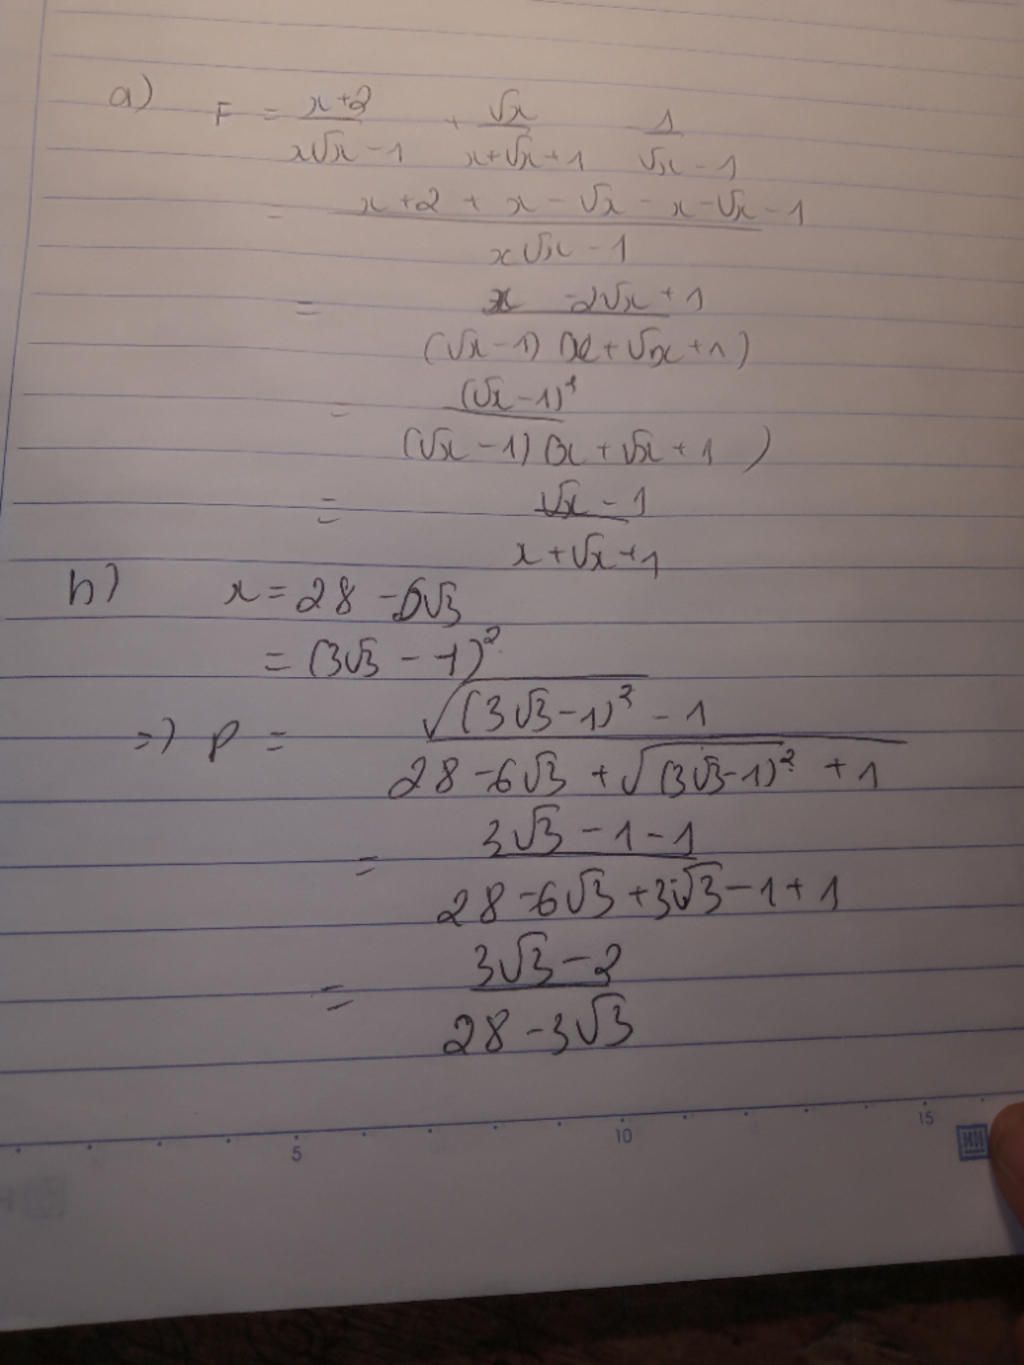 a) F = x+2/x√x - 1 + √x/x+√x+1 1/√x - 1
= x+2 + x - √x - x - √x - 1/x√x - 1
= x -2√x + 1/(√x - 1) (x + √x + 1)
= (√x - 1)²/(√x - 1) (x + √x + 1 )
= √x - 1/x + √x + 1
b) x = 28 - 6√3
= (3√3 - 1)²
=> P = √(3√3-1)² - 1/28 - 6√3 + √(3√3-1)² + 1
= 3√3 - 1 - 1/28 - 6√3 + 3√3 - 1 + 1
= 3√3 - 2/28 - 3√3
5 10 15